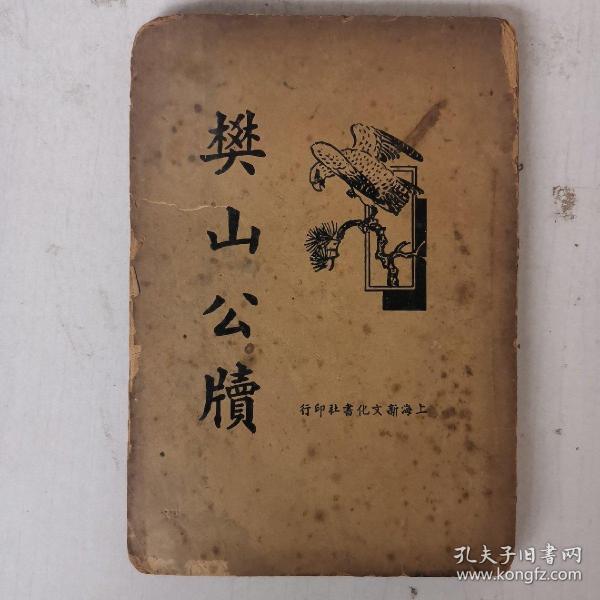 樊山公牘
上海新文化書社印行
孔夫子旧书网
www.kongfz.com